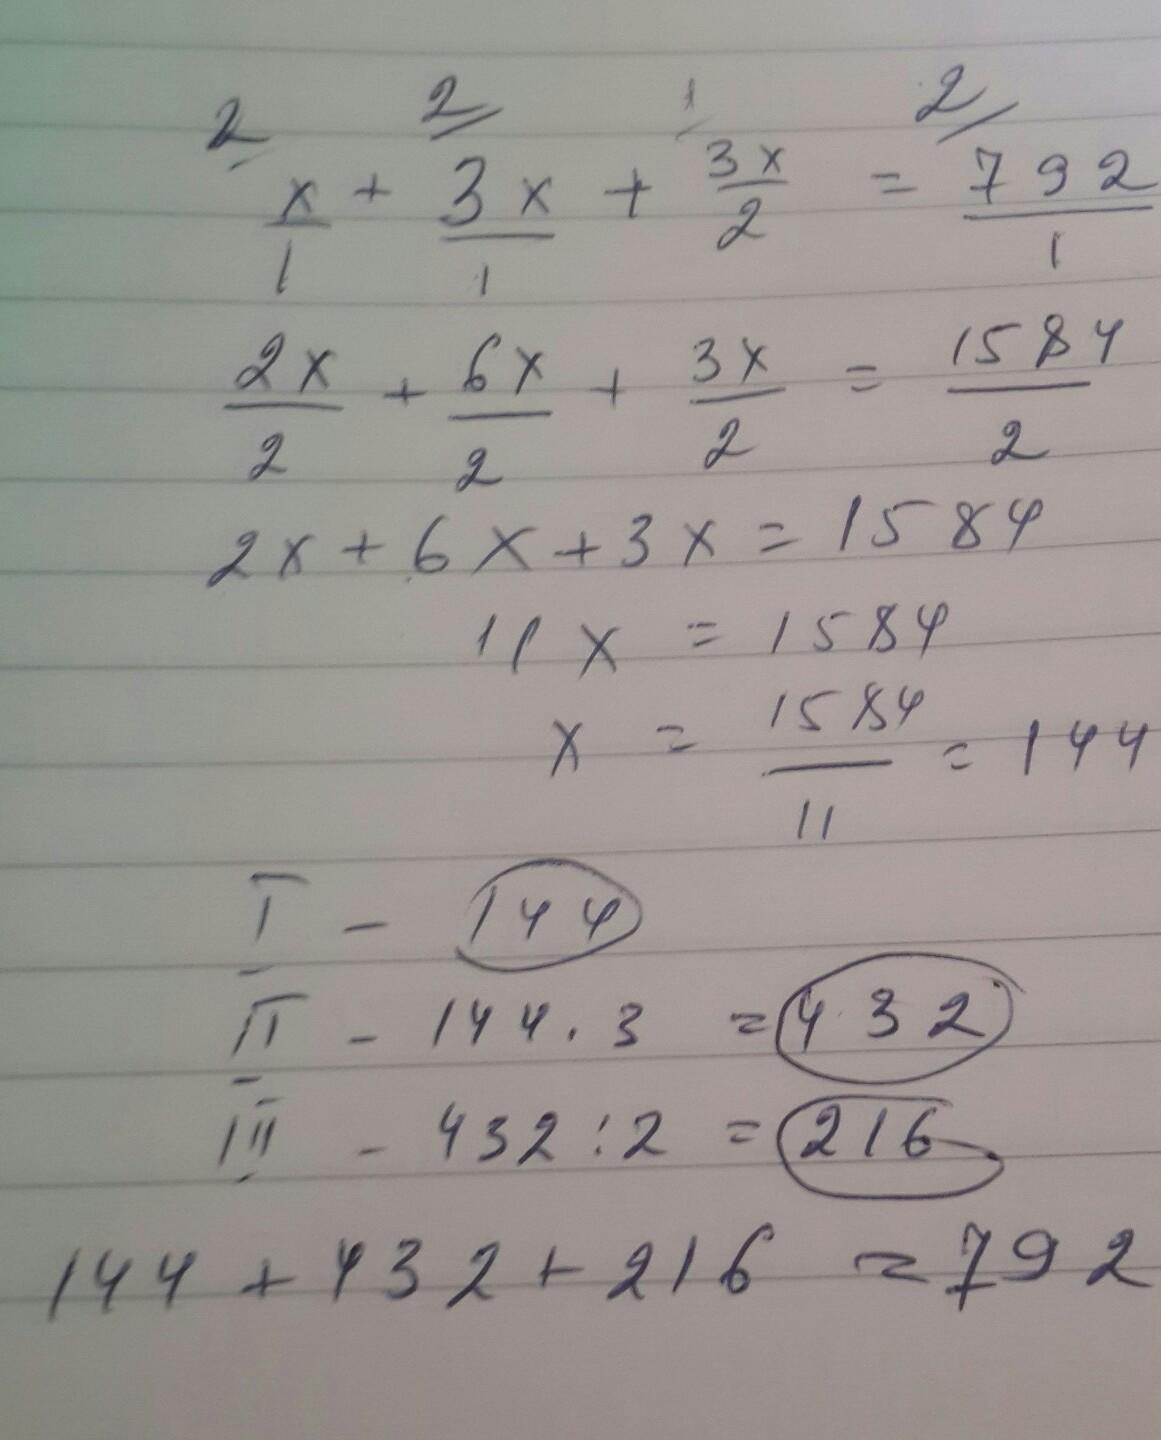 2 2 1 2
x/1 + 3x/1 + 3x/2 = 792/1
2x/2 + 6x/2 + 3x/2 = 1584/2
2x + 6x + 3x = 1584
11x = 1584
x = 1584/11 = 144
I - 144
II - 144 . 3 = 432
III - 432 : 2 = 216
144 + 432 + 216 = 792